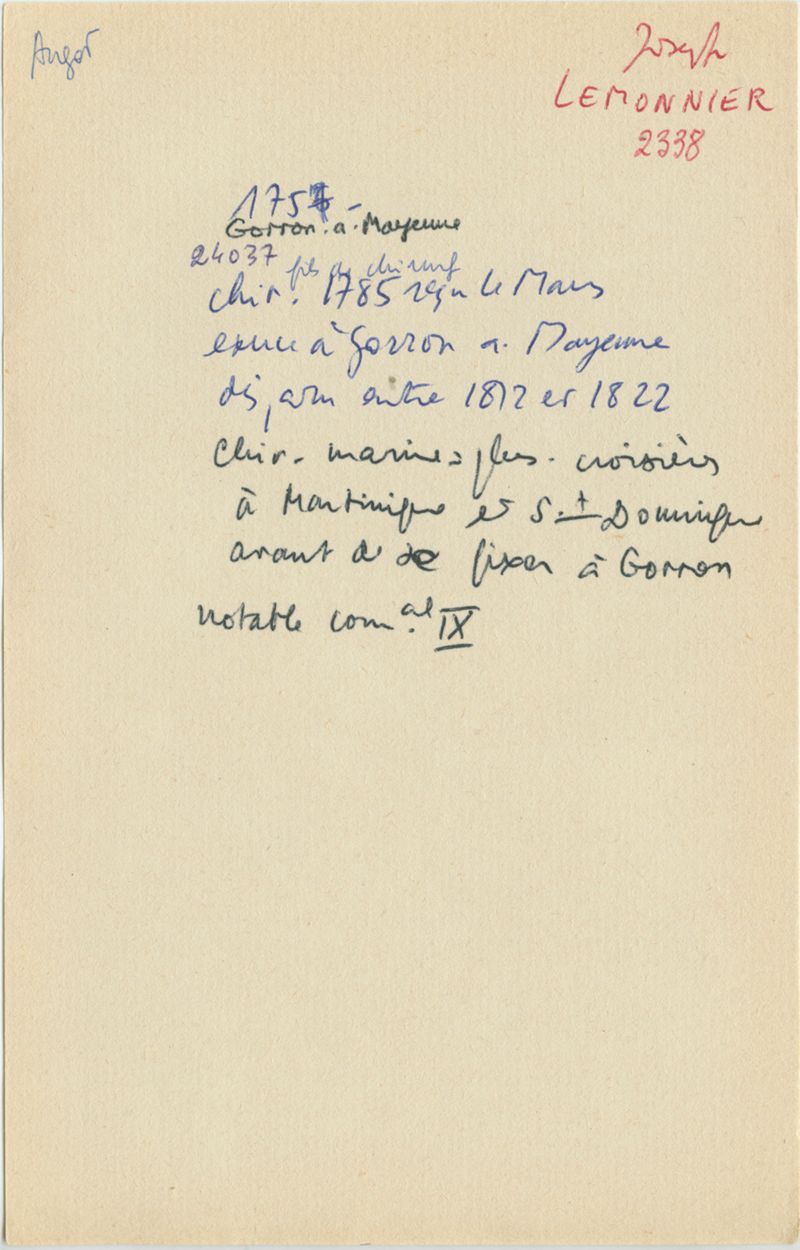 Angot
Joseph
LEMONNIER
2338
175 -
Gorron. a. Mayenne
24037 fils de chirurg
chir. 1785 reçu Le Mans
exerce à Gorron a. Mayenne
entre 1812 et 1822
Chir. marine: plus. croisières
à Martinique et St Domingue
avant de se fixer à Gorron
notable com.al IX